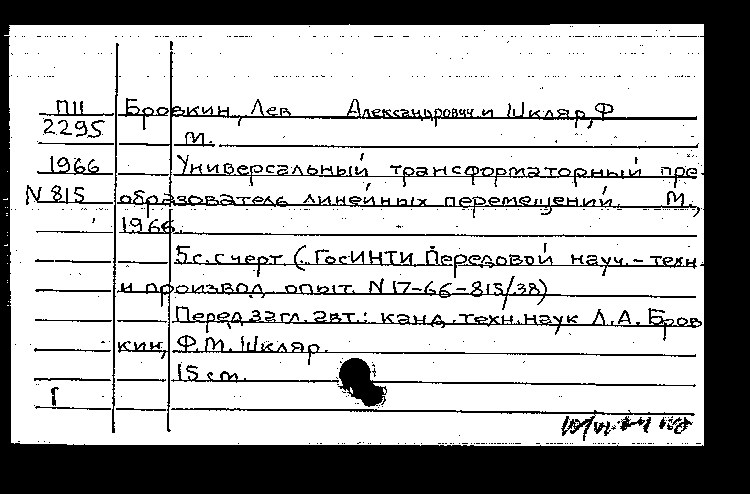 П11 Бровкин, Лев Александрович и Шкляр, Ф
2295 М.
1966 Универсальный трансформаторный пре-
N 815 образователь линейных перемещений. М.,
1966.
5 с. с черт. (ГосИНТИ. Передовой науч.-техн.
и производ. опыт. N 17-66-815/38)
Перед загл. авт.: канд. техн. наук Л.А. Бров
кин, Ф.М. Шкляр.
15 см.
Г